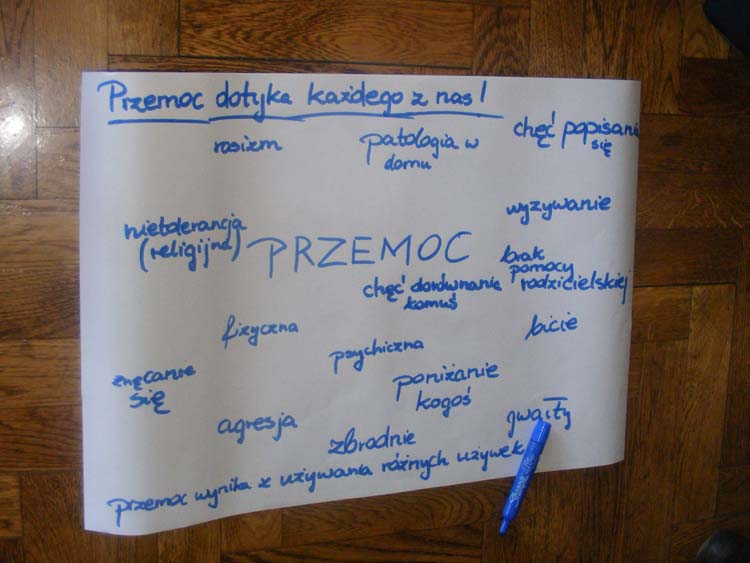 Przemoc dotyka każdego z nas!
rasizm
patologia w
domu
chęć popisania
się
wyzywanie
nietolerancja
(religijna)
PRZEMOC
brak
pomocy
rodzicielskiej
chęć dorównania
komuś
fizyczna
psychiczna
bicie
znęcanie
się
poniżanie
kogoś
agresja
zbrodnie
gwałty
przemoc wynika z używania różnych używek